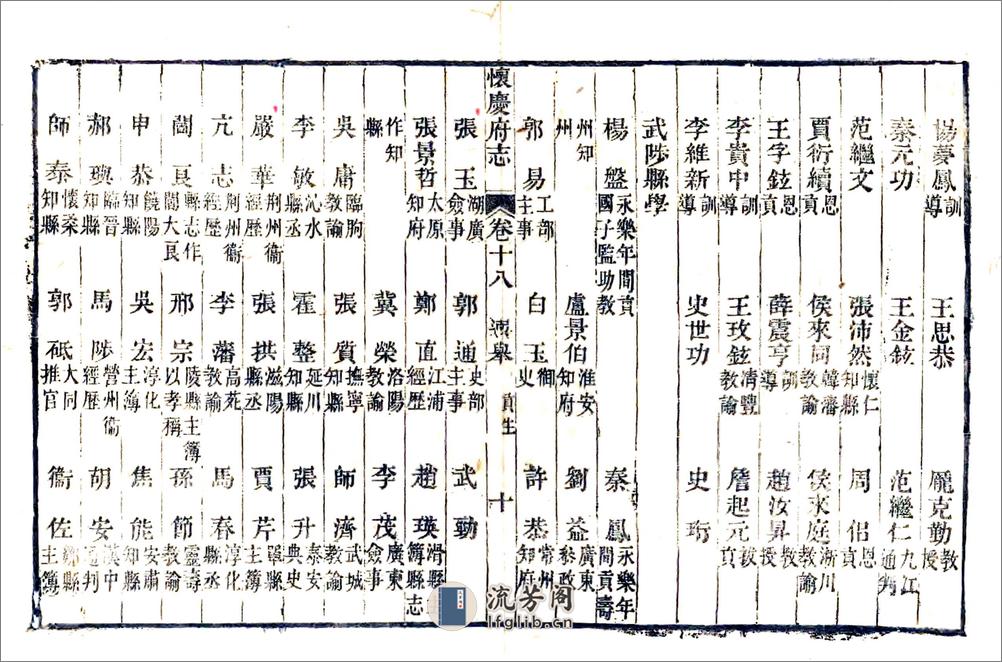 楊夢鳳訓導 王思恭 龐克勤教授
秦元功 王金鉉 范繼仁九江通判
范繼文 張沛然懷仁知縣 周侶恩貢
賈衍續恩貢 侯來同韓藩教諭 侯來庭淅川教諭
王字鉉恩貢 薛震亨訓導 趙汝昇教授
李貴中訓導 王玫鉉清豐教諭 詹起元拔貢
李維新訓導 史世功 史珩
武陟縣學
楊盤永樂年間貢國子監助教 秦鳳永樂年間貢壽
州知州 盧景伯淮安知府 劉益廣東參政
郭易工部主事 白玉御史 許恭常州知府
懷慶府志 卷十八 選舉 貢生 十
張玉湖廣僉事 郭通史部主事 武勤
張景哲太原知府 鄭直江浦經歷 趙瑛滑縣簿縣志
作知縣 冀榮洛陽教諭 李茂廣東僉事
吳庸臨朐教諭 張質撫寧知縣 師濟武城教諭
李敏沁水縣丞 霍整延川知縣 張升泰安典史
嚴華荊州衛經歷 張拱滋陽縣丞 賈芹單縣主簿
亢志荊州衛經歷 李藩高苑教諭 馬春淳化縣丞
閻良縣志作閻大良 邢宗陵縣主簿以孝稱 孫節靈壽教諭
申恭饒陽知縣 吳宏淳化主簿 焦能安肅知縣
郝璵臨晉知縣 馬陟營州衛經歷 胡安漢中通判
師泰懷柔知縣 郭砥大同推官 衞佐鄒縣主簿
流芳阁
lfglib.cn